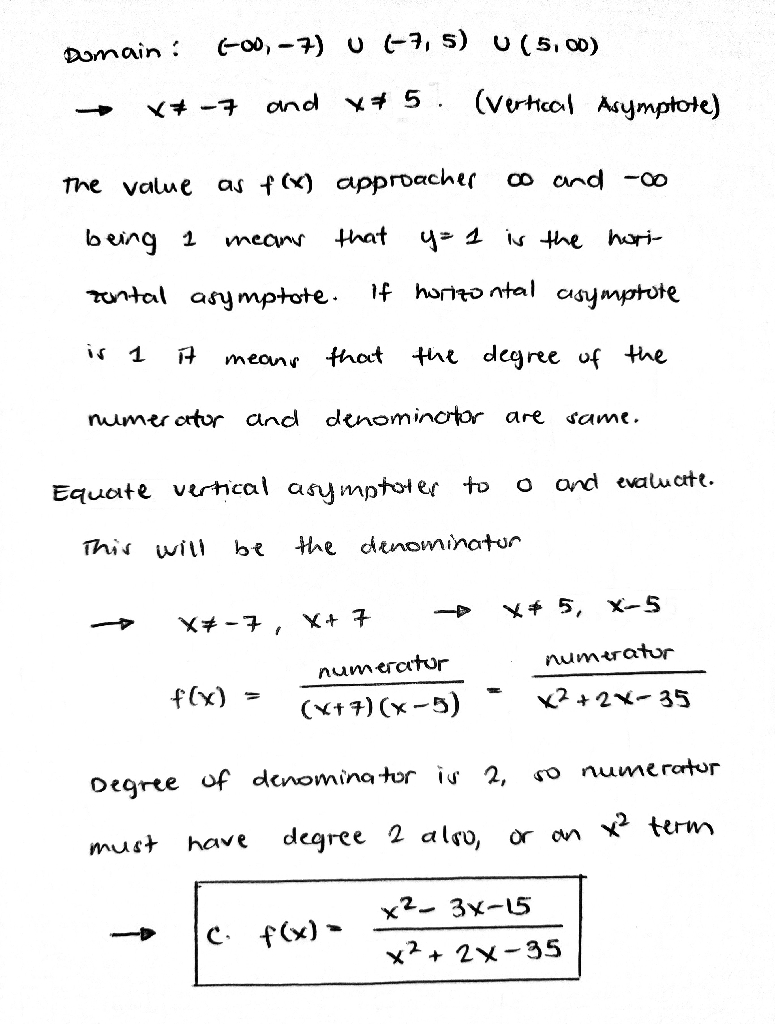 Domain: (-∞, -7) ∪ (-7, 5) ∪ (5, ∞)
→ x ≠ -7 and x ≠ 5. (Vertical Asymptote)
The value as f(x) approaches ∞ and -∞
being 1 means that y = 1 is the hori-
zontal asymptote. If horizontal asymptote
is 1 it means that the degree of the
numerator and denominator are same.
Equate vertical asymptotes to 0 and evaluate.
This will be the denominator
→ x ≠ -7, x + 7 → x ≠ 5, x - 5
f(x) = numerator / (x+7)(x-5) = numerator / x² + 2x - 35
Degree of denominator is 2, so numerator
must have degree 2 also, or an x² term
→ C. f(x) = x² - 3x - 15 / x² + 2x - 35